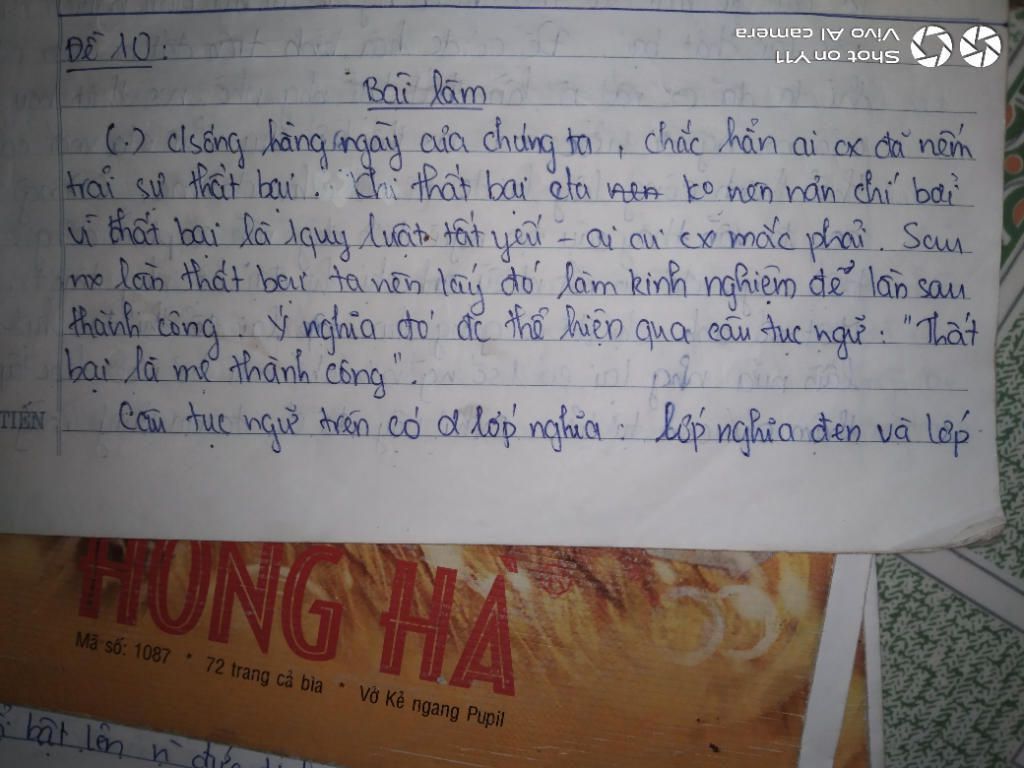 Đề 10:
Bài làm
(.) c/sống hàng ngày của chúng ta, chắc hẳn ai cx đã nếm
trải sự thất bại. Khi thất bại cta nen ko nên nản chí bởi
vì thất bại là 1 quy luật tất yếu - ai ai cx mắc phải. Sau
mỗi lần thất bại ta nên lấy đó làm kinh nghiệm để lần sau
thành công. Ý nghĩa đó đc thể hiện qua câu tục ngữ: "Thất
bại là mẹ thành công".
Câu tục ngữ trên có 2 lớp nghĩa: lớp nghĩa đen và lớp
TIẾN
HONG HA
Mã số: 1087 * 72 trang cả bìa * Vở Kẻ ngang Pupil
bật lên
Shot on Y11
Vivo AI camera